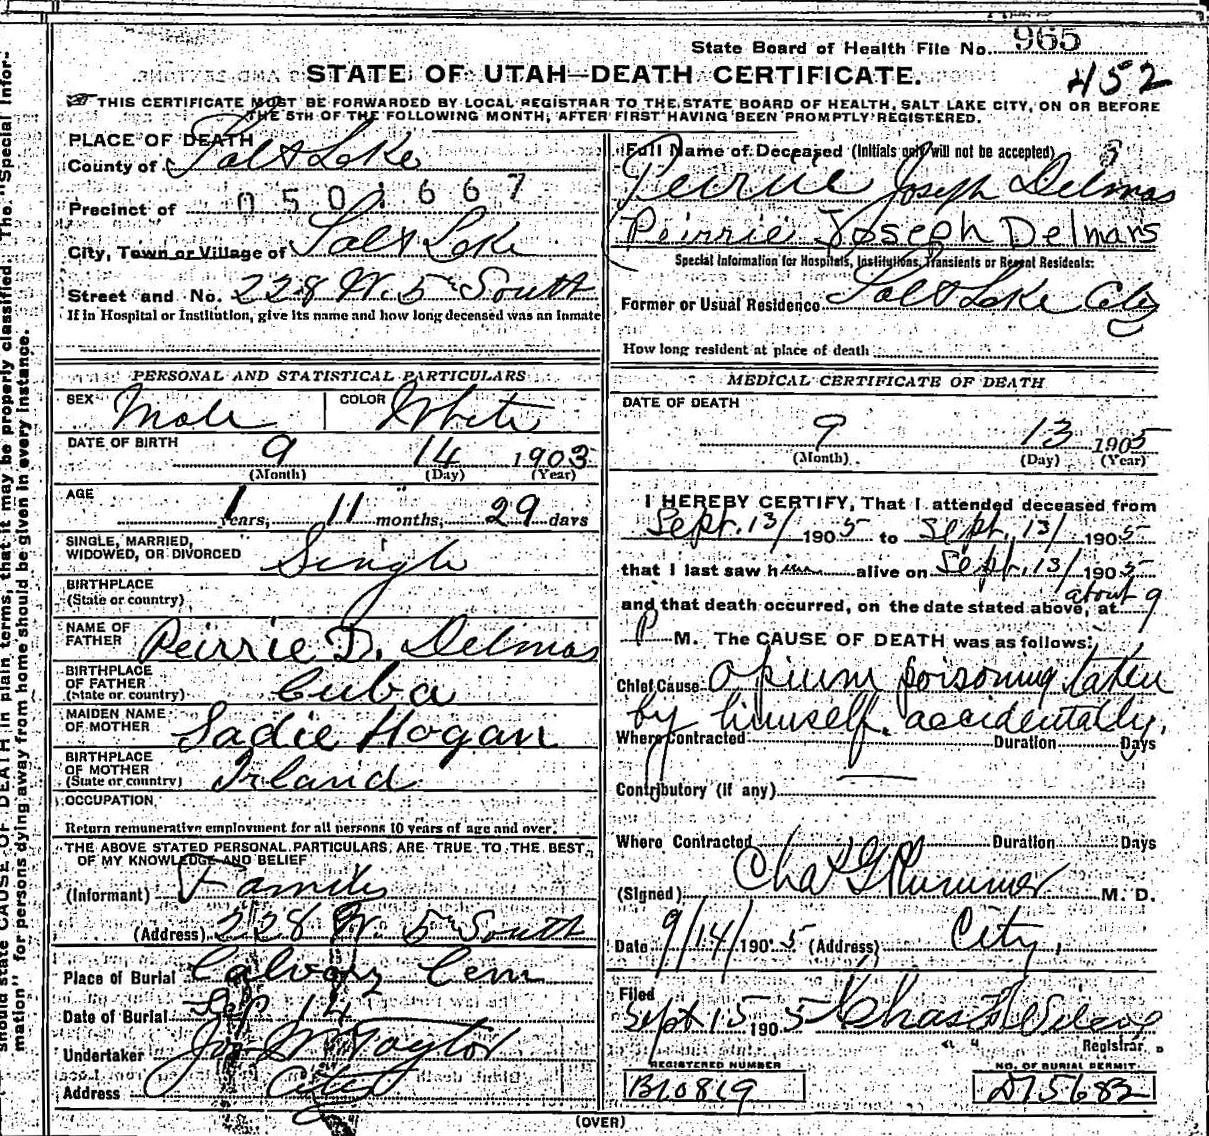 State Board of Health File No. 965
STATE OF UTAH—DEATH CERTIFICATE.
452
THIS CERTIFICATE MUST BE FORWARDED BY LOCAL REGISTRAR TO THE STATE BOARD OF HEALTH, SALT LAKE CITY, ON OR BEFORE
THE 5TH OF THE FOLLOWING MONTH, AFTER FIRST HAVING BEEN PROMPTLY REGISTERED.
PLACE OF DEATH
County of Salt Lake
Precinct of 0 5 0 1 6 6 7
City, Town or Village of Salt Lake
Street and No. 228 W. 5th South
If in Hospital or Institution, give its name and how long deceased was an inmate
PERSONAL AND STATISTICAL PARTICULARS
SEX Male COLOR White
DATE OF BIRTH 9 14 1903
(Month) (Day) (Year)
AGE 1 years, 11 months, 29 days
SINGLE, MARRIED,
WIDOWED, OR DIVORCED Single
BIRTHPLACE
(State or country)
NAME OF
FATHER Peirrie D. Delmas
BIRTHPLACE
OF FATHER
(State or country) Cuba
MAIDEN NAME
OF MOTHER Sadie Hogan
BIRTHPLACE
OF MOTHER
(State or country) Irland
OCCUPATION
Return remunerative employment for all persons 10 years of age and over.
THE ABOVE STATED PERSONAL PARTICULARS ARE TRUE TO THE BEST
OF MY KNOWLEDGE AND BELIEF
(Informant) Family
(Address) 228 W. 5th South
Place of Burial Calvary Cem
Date of Burial Sep 14
Undertaker Jos Wm Taylor
Address City
Full Name of Deceased (Initials only will not be accepted)
Peirrie Joseph Delmas
Peirrie Joseph Delmars
Special Information for Hospitals, Institutions, Transients or Recent Residents:
Former or Usual Residence Salt Lake City
How long resident at place of death
MEDICAL CERTIFICATE OF DEATH
DATE OF DEATH
9 13 1905
(Month) (Day) (Year)
I HEREBY CERTIFY, That I attended deceased from
Sept. 13/ 1905 to Sept. 13/ 1905
that I last saw him alive on Sept. 13/ 1905
and that death occurred, on the date stated above, at about 9
P M. The CAUSE OF DEATH was as follows:
Chief Cause Opium poisoning taken
by himself. accidentally.
Where Contracted Duration Days
Contributory (if any)
Where Contracted Duration Days
(Signed) Chas G Plummer M. D.
Date 9/14/1905 (Address) City.
Filed
Sept 15 1905 Chas
Registrar
REGISTERED NUMBER NO. OF BURIAL PERMIT
B10819 D15682
(OVER)
should state CAUSE OF DEATH in plain terms, that it may be properly classified. The "Special Infor-
mation" for persons dying away from home should be given in every instance.